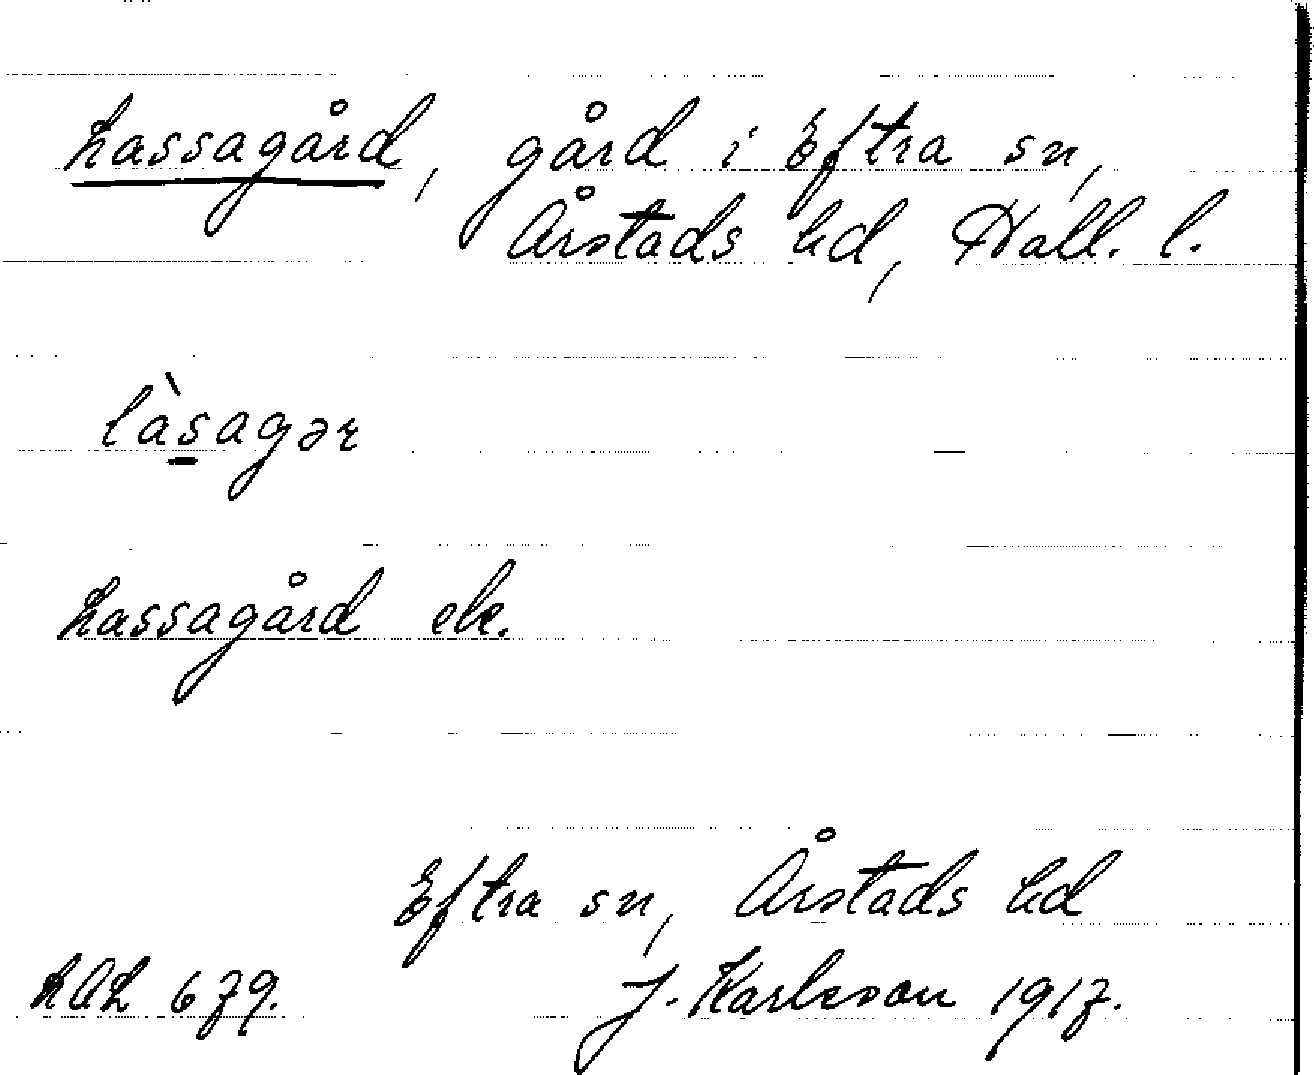 Lassagård, gård i Eftra sn,
Årstads hd, Hall. l.
là̱sagər
Lassagård ek.
Eftra sn, Årstads hd
LAL 679. J. Karlsson 1917.